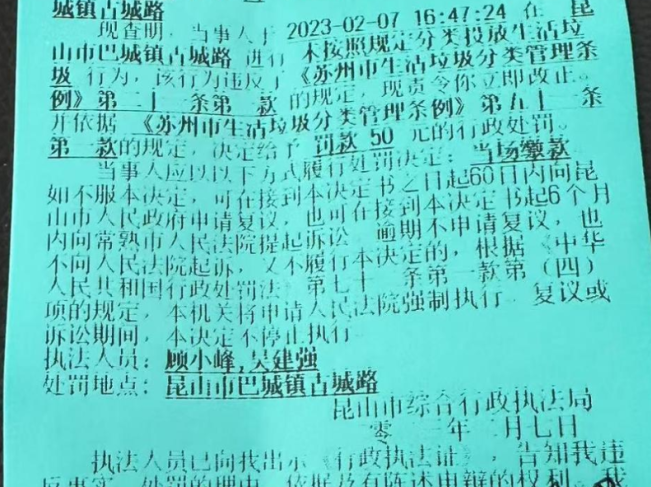 城镇古城路
现查明，当事人于 2023-02-07 16:47:24 在 昆
山市巴城镇古城路 进行 未按照规定分类投放生活垃
圾 行为，该行为违反了《苏州市生活垃圾分类管理条
例》第二十 条第 款 的规定，现责令你立即改正。
并依据 《苏州市生活垃圾分类管理条例》第五十 条
第 款的规定，决定给予 罚款 50 元的行政处罚。
当事人应以以下方式履行处罚决定：当场缴款
如不服本决定，可在接到本决定书之日起60日内向昆
山市人民政府申请复议，也可在接到本决定书起6个月
内向常熟市人民法院提起诉讼 逾期不申请复议，也
不向人民法院起诉，又不履行本决定的，根据《中华
人民共和国行政处罚法 第七十 条第一款第（四）
项的规定，本机关将申请人民法院强制执行 复议或
诉讼期间，本决定不停止执行
执法人员：顾小峰，吴建强
处罚地点：昆山市巴城镇古城路
昆山市综合行政执法局
零 三年二月七日
执法人员已向我出示《行政执法证》，告知我违
事实 处罚的理由 依据及有陈述申辩的权利 我